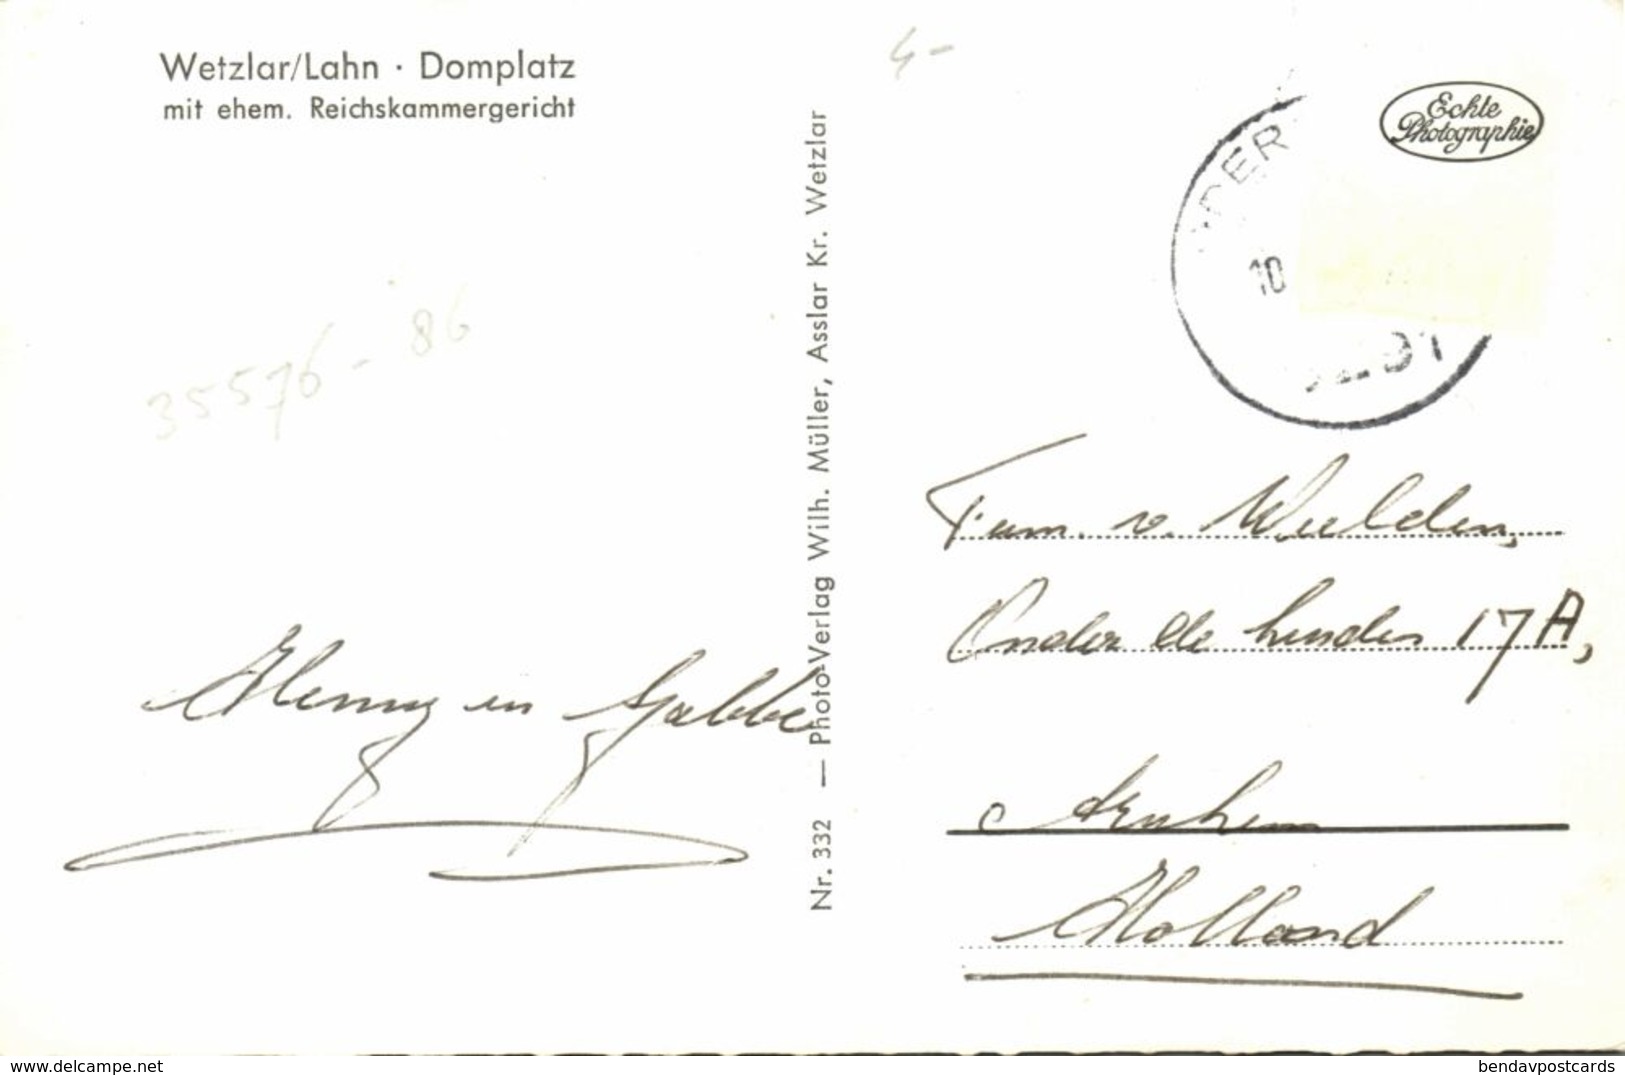 Wetzlar/Lahn · Domplatz
mit ehem. Reichskammergericht
4-
Echte
Photographie
10
35576 - 86
Nr. 332 — Photo-Verlag Wilh. Müller, Asslar Kr. Wetzlar
Fam. v. Wielden,
Onder de Linden 17A,
Arnhem
Holland
Henny en Gabbe
delcampe.net
bendavpostcards